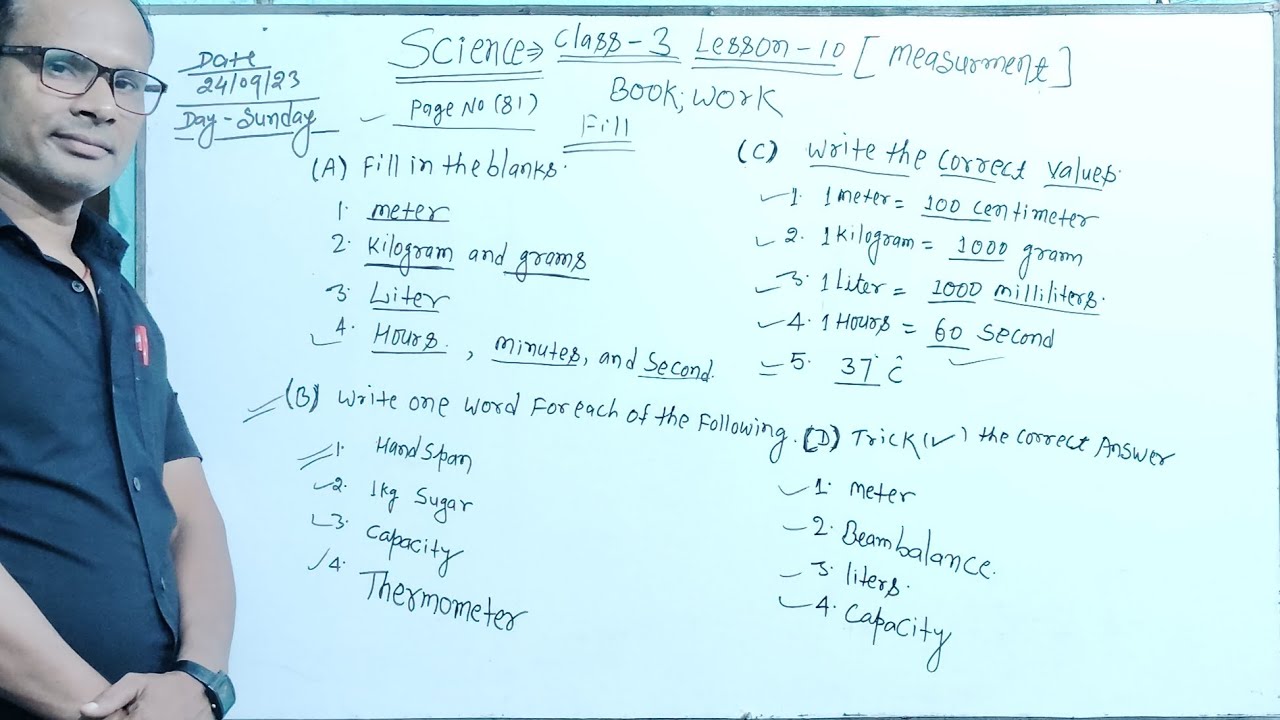 Date
24/09/23
Day - Sunday
Science⇒ Class-3 Lesson-10 [measurment]
Book; work
Page No (81)
Fill
(A) Fill in the blanks.
1. meter
2. Kilogram and grams
3. Liter
4. Hours, minutes, and Second.
(B) Write one word For each of the Following.
1. Hand Span
2. 1kg Sugar
3. Capacity
4. Thermometer
(C) Write the correct values.
1. 1 meter = 100 centimeter
2. 1 kilogram = 1000 gram
3. 1 Liter = 1000 milliliters.
4. 1 Hours = 60 Second
5. 37° C
(D) Trick (✓) the correct Answer
1. meter
2. Beam balance.
3. liters.
4. Capacity